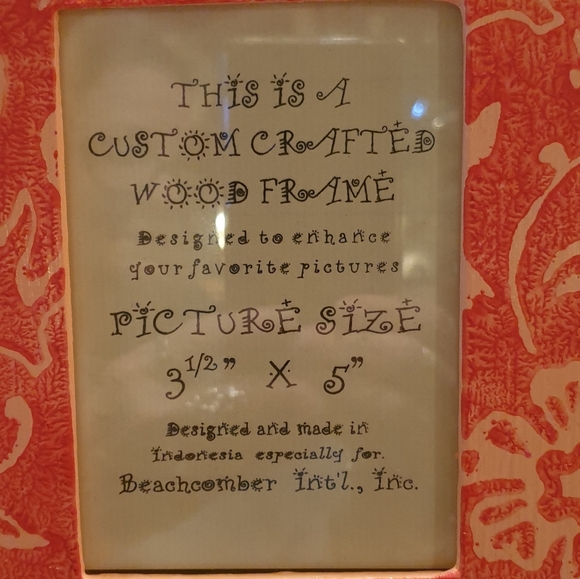 THIS IS A
CUSTOM CRAFTED
WOOD FRAME
Designed to enhance
your favorite pictures
PICTURE SIZE
3 1/2" X 5"
Designed and made in
Indonesia especially for.
Beachcomber Int'l., Inc.